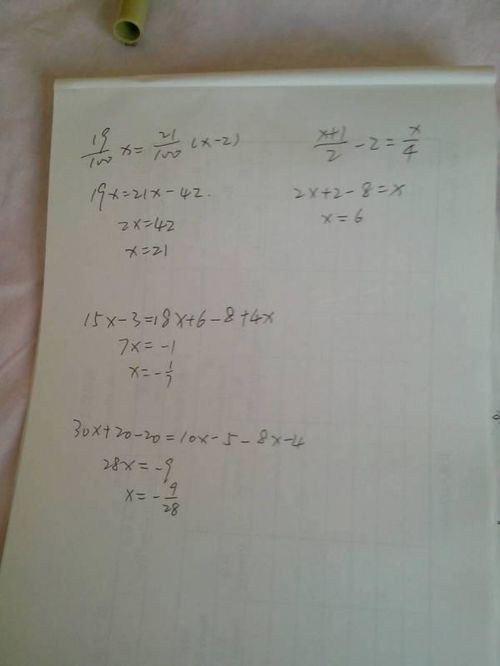 19/100 x = 21/100 (x-2)
19x=21x-42.
2x=42
x=21
(x+1)/2 -2 = x/4
2x+2-8=x
x=6
15x-3=18x+6-8+4x
7x=-1
x=-1/7
30x+20-20=10x-5-8x-4
28x=-9
x=-9/28